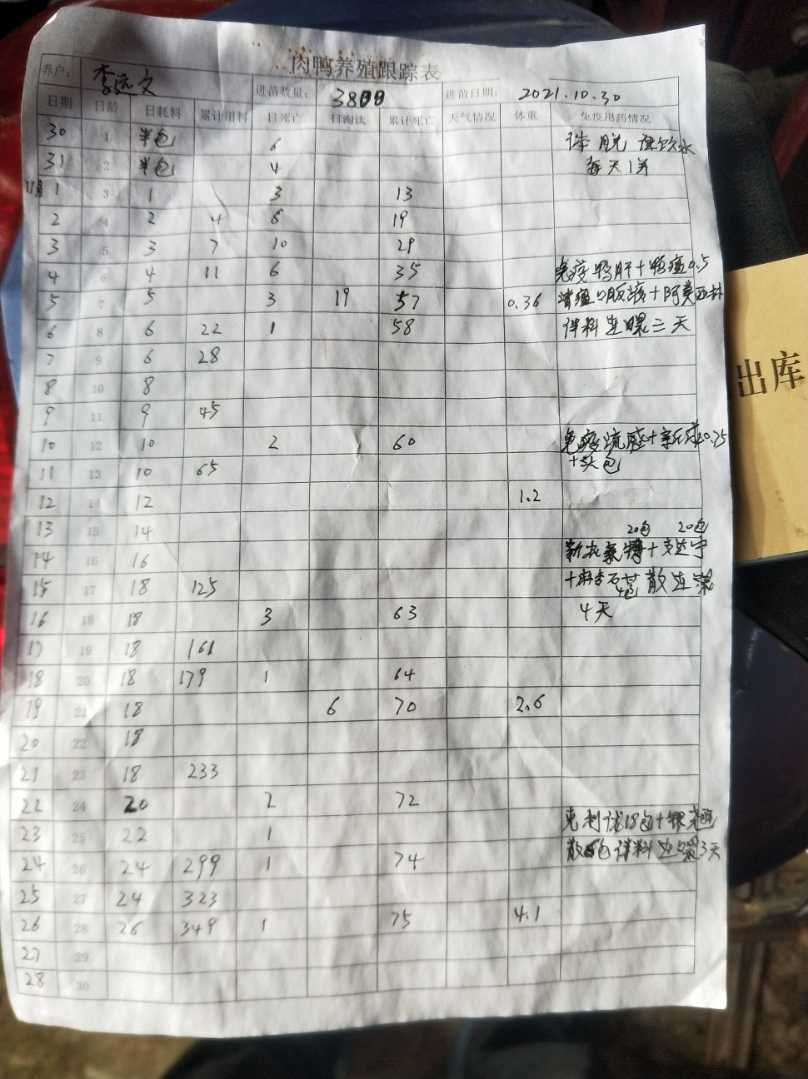 肉鸭养殖跟踪表
养户： 李远文 进苗数量： 3800 进苗日期： 2021.10.30
日期 日龄 日耗料 累计用料 日死亡 日淘汰 累计死亡 天气情况 体重 免疫用药情况
30 1 半包 6
31 2 半包 4 每天1次
11月1 3 1 3 13
2 4 2 4 6 19
3 5 3 7 10 29
4 6 4 11 6 35 免疫鸭肝+ 0.5
5 7 5 3 19 57 0.36
6 8 6 22 1 58 拌料连喂三天
7 9 6 28
8 10 8
9 11 9 45
10 12 10 2 60 免疫流感+
11 13 10 65
12 14 12 1.2
13 15 14 20包 20包
14 16 16
15 17 18 125
16 18 18 3 63 4天
17 19 18 161
18 20 18 179 1 64
19 21 18 6 70 2.6
20 22 18
21 23 18 233
22 24 20 2 72
23 25 22 1
24 26 24 299 1 74 拌料连喂3天
25 27 24 323
26 28 26 349 1 75 4.1
27 29
28 30
出库